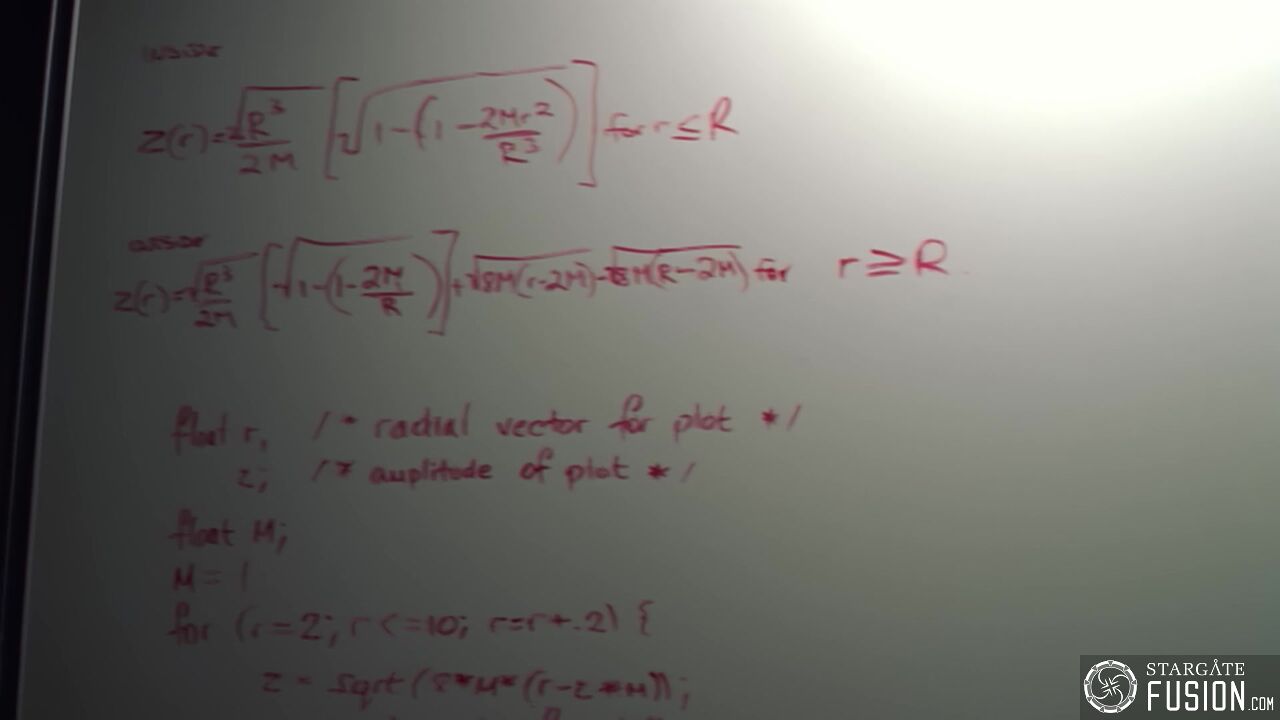 inside
z(r)=√R³/2M [√1-(1-2Mr²/R³)] for r ≤ R
outside
z(r)=√R³/2M [√1-(1-2M/R)]+√8M(r-2M)-√8M(R-2M) for r ≥ R
float r, /* radial vector for plot */
z; /* amplitude of plot */
float M;
M = 1
for (r=2; r<=10; r=r+.2) {
z = sqrt(8*M*(r-2*M));
STARGATE
FUSION.COM